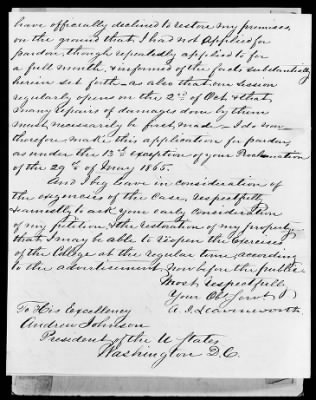 have officially declined to restore my premises,
on the ground that I had not applied for
pardon, though repeatedly applied to for
a full month, & informed of the facts substantially
herein set forth – as also that our session
regularly opens on the 2nd of Oct. & that
many repairs of damages done by them
must necessarily be first made – I do now
therefore make this application for pardon,
as under the 13th exception of your Proclamation
of the 29th of May 1865.
And I beg leave in consideration of
the exigencies of the case, respectfully
& earnestly to ask your early consideration
of my petition & the restoration of my property
that I may be able to reopen the Exercises
of the College at the regular time, according
to the advertisement now before the public
Most respectfully
Your Obt Servt
To His Excellency
A. J. Leavenworth
Andrew Johnson
President of the U States
Washington D.C.